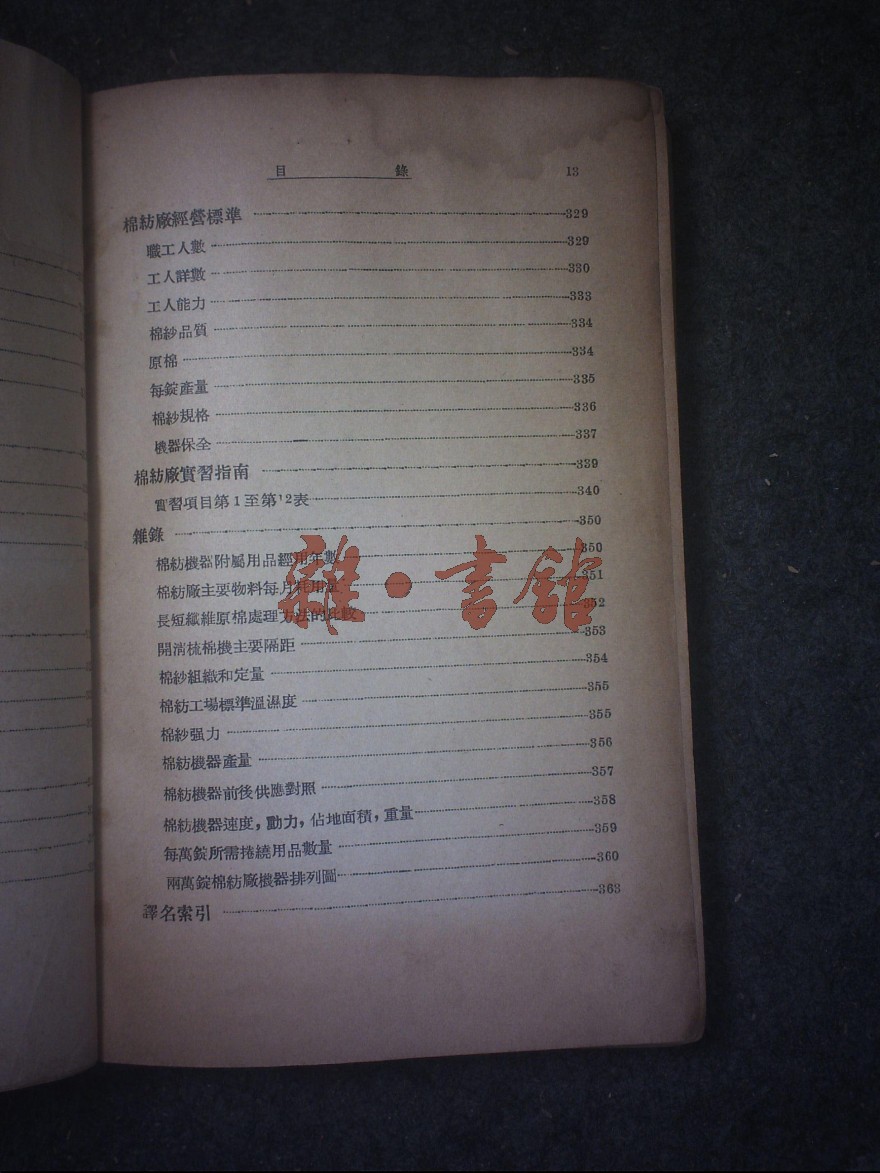 目 錄 13
棉紡廠經營標準 329
職工人數 329
工人詳數 330
工人能力 333
棉紗品質 334
原棉 334
每錠產量 335
棉紗規格 336
機器保全 337
棉紡廠實習指南 339
實習項目第1至第12表 340
雜錄 350
棉紡機器附屬用品經用年數 350
棉紡廠主要物料每月耗用量 351
長短纖維原棉處理方法的比較 352
開清梳棉機主要隔距 353
棉紗組織和定量 354
棉紡工場標準溫濕度 355
棉紗强力 355
棉紡機器產量 356
棉紡機器前後供應對照 357
棉紡機器速度，動力，佔地面積，重量 358
每萬錠所需捲繞用品數量 359
兩萬錠棉紡廠機器排列圖 360
譯名索引 363
雜·書館